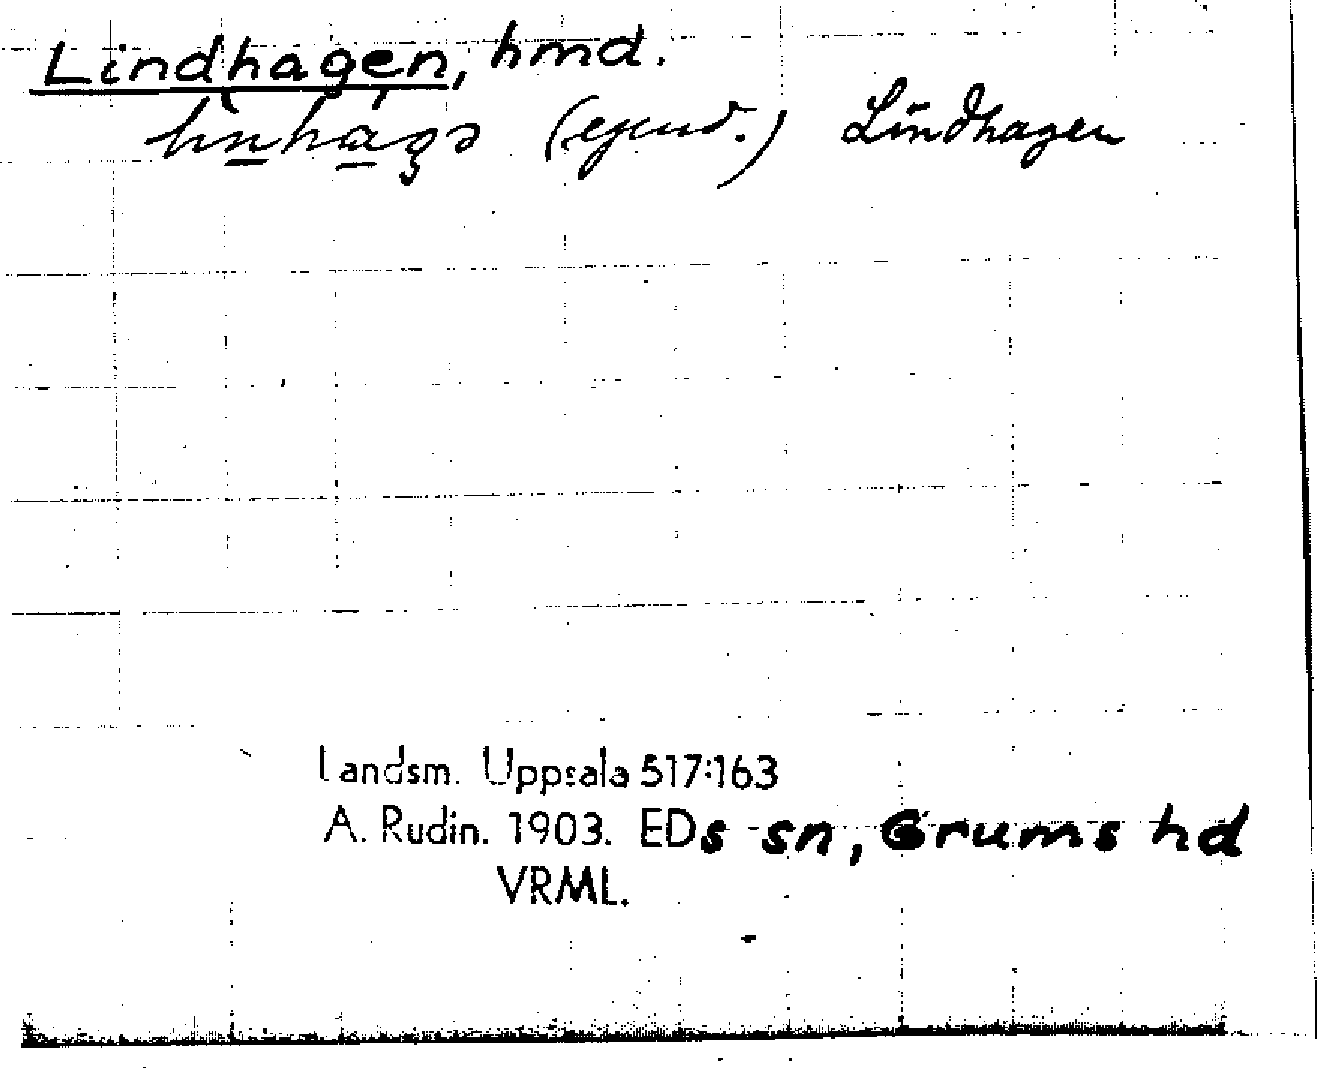 Lindhagen, hmd.
(egend.) Lindhagen
Landsm. Uppsala 517:163
A. Rudin. 1903. EDs sn, Grums hd
VRML.